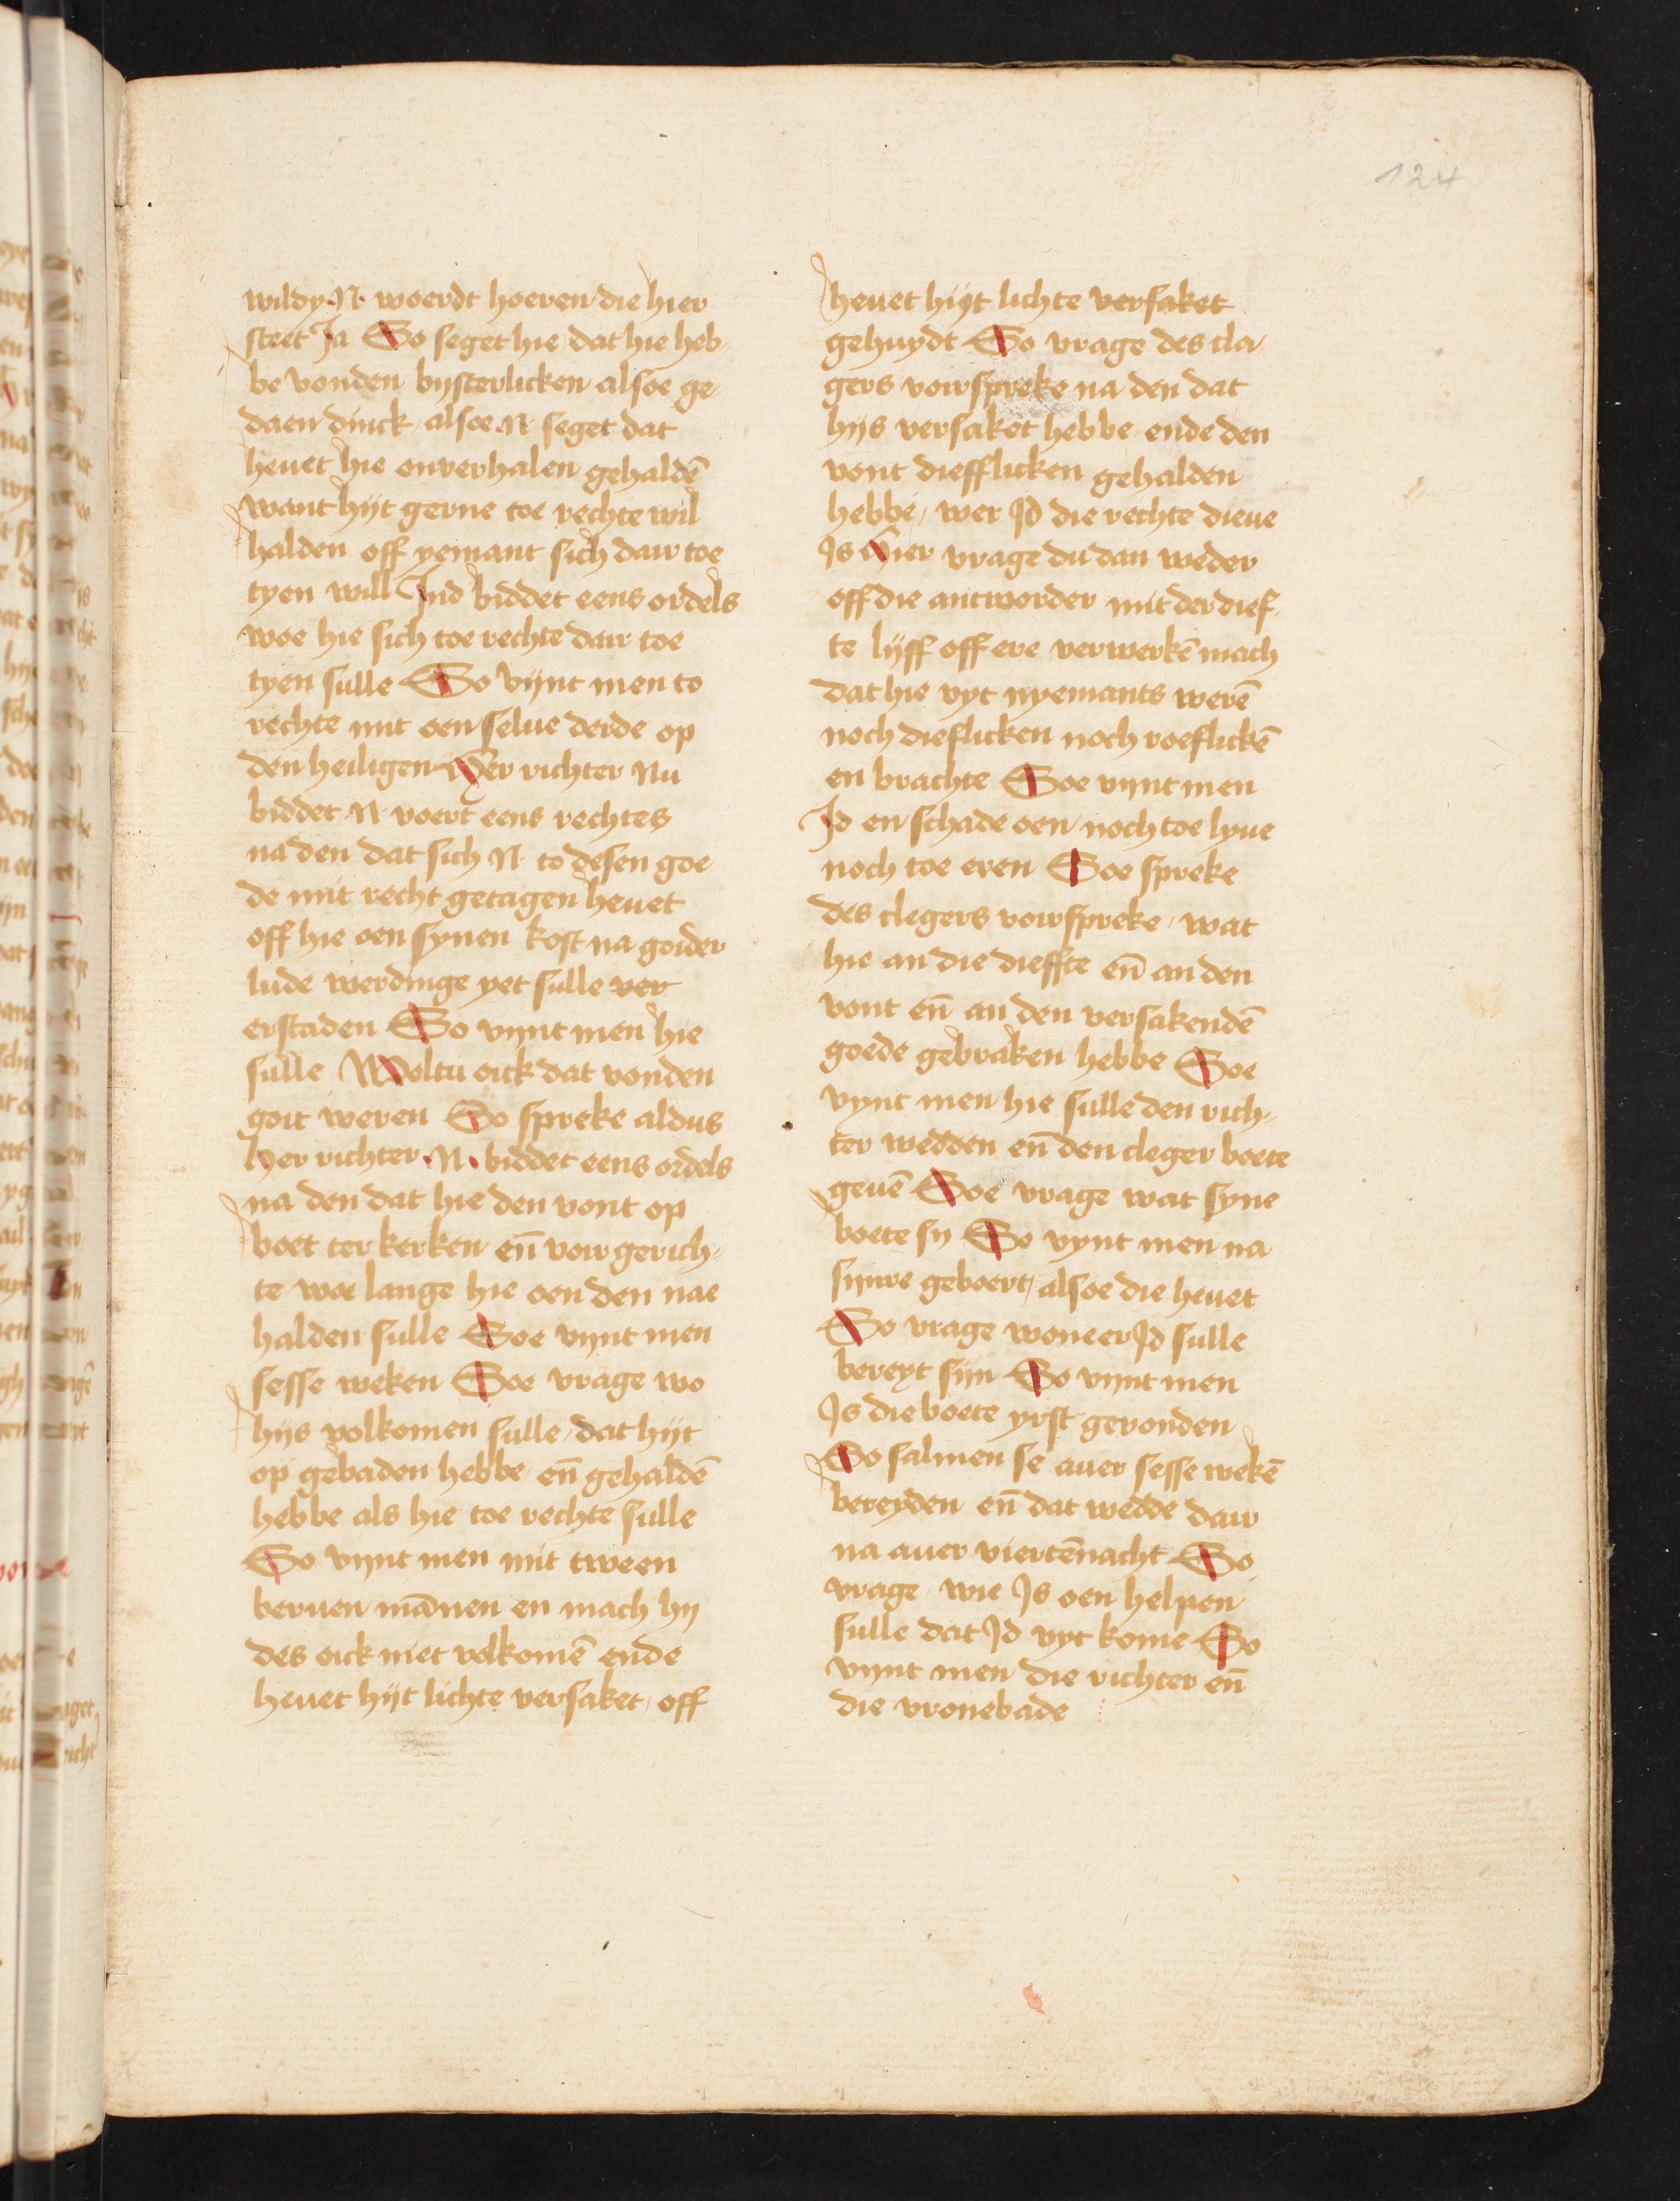 124
wildy ·N· woerdt hoeren die hier
steet Ja So seget hie dat hie heb-
be vonden bysterlicken alsoe ge-
daen dinck / alsoe ·N· seget dat
heuet hie onverhalen gehaldē
want hijt gerne toe rechte wil
halden off yemant sich dair toe
tyen will Ind biddet eens ordels
woe hie sich toe rechte dair toe
tyen sulle So vijnt men to
rechte mit oen selue derde op
den heiligen Her richter Nu
biddet ·N· voert eens rechtes
na den dat sich ·N· to desen goe
de mit recht getagen heuet
off hie oen synen kost na goider
lude werdinge yet sulle ver
erstaden So vijnt men hie
sulle Woltu oick dat vonden
goit weren So spreke aldus
her richter ·N· biddet eens ordels
na den dat hie den vont op
boet ter kerken en̄ voir gerich-
te woe lange hie oen den nae
halden sulle Soe vijnt men
sesse weken Soe vrage wo
hijs volkomen sulle / dat hijt
op gebaden hebbe en̄ gehaldē
hebbe als hie toe rechte sulle
So vijnt men mit tween
beruen mānen en mach hij
des oick niet volkomē ende
heuet hijt lichte versaket / off
heuet hijt lichte versaket
gehuydt So vrage des cla-
gers voirspreke na den dat
hijs versaket hebbe ende den
vont diefflicken gehalden
hebbe / wer Jd die rechte dieue
Js Hier vrage du dan weder
off die antworder mit der dief-
te lijff off ere verwerkē mach
dat hie vyt nyemants werē
noch dieflicken noch roeflickē
en brachte Soe vijnt men
Jd en schade oen noch toe lyue
noch toe eren Soe spreke
des clegers voirspreke / wat
hie an die dieffte en̄ an den
vont en̄ an den versakendē
goede gebraken hebbe Soe
vynt men hie sulle den rich-
ter wedden en̄ den cleger boete
geuē Soe vrage wat syne
boete sy So vynt men na
sijnre geboert / alsoe die heuet
So vrage woneer Jd sulle
bereyt sijn So vijnt men
Js die boete yrst gevonden
So salmen se auer sesse wekē
bereyden en̄ dat wedde dair
na auer viertēnacht So
vrage / wie Js oen helpen
sulle dat Jd vyt kome So
vijnt men die richter en̄
die vronebade